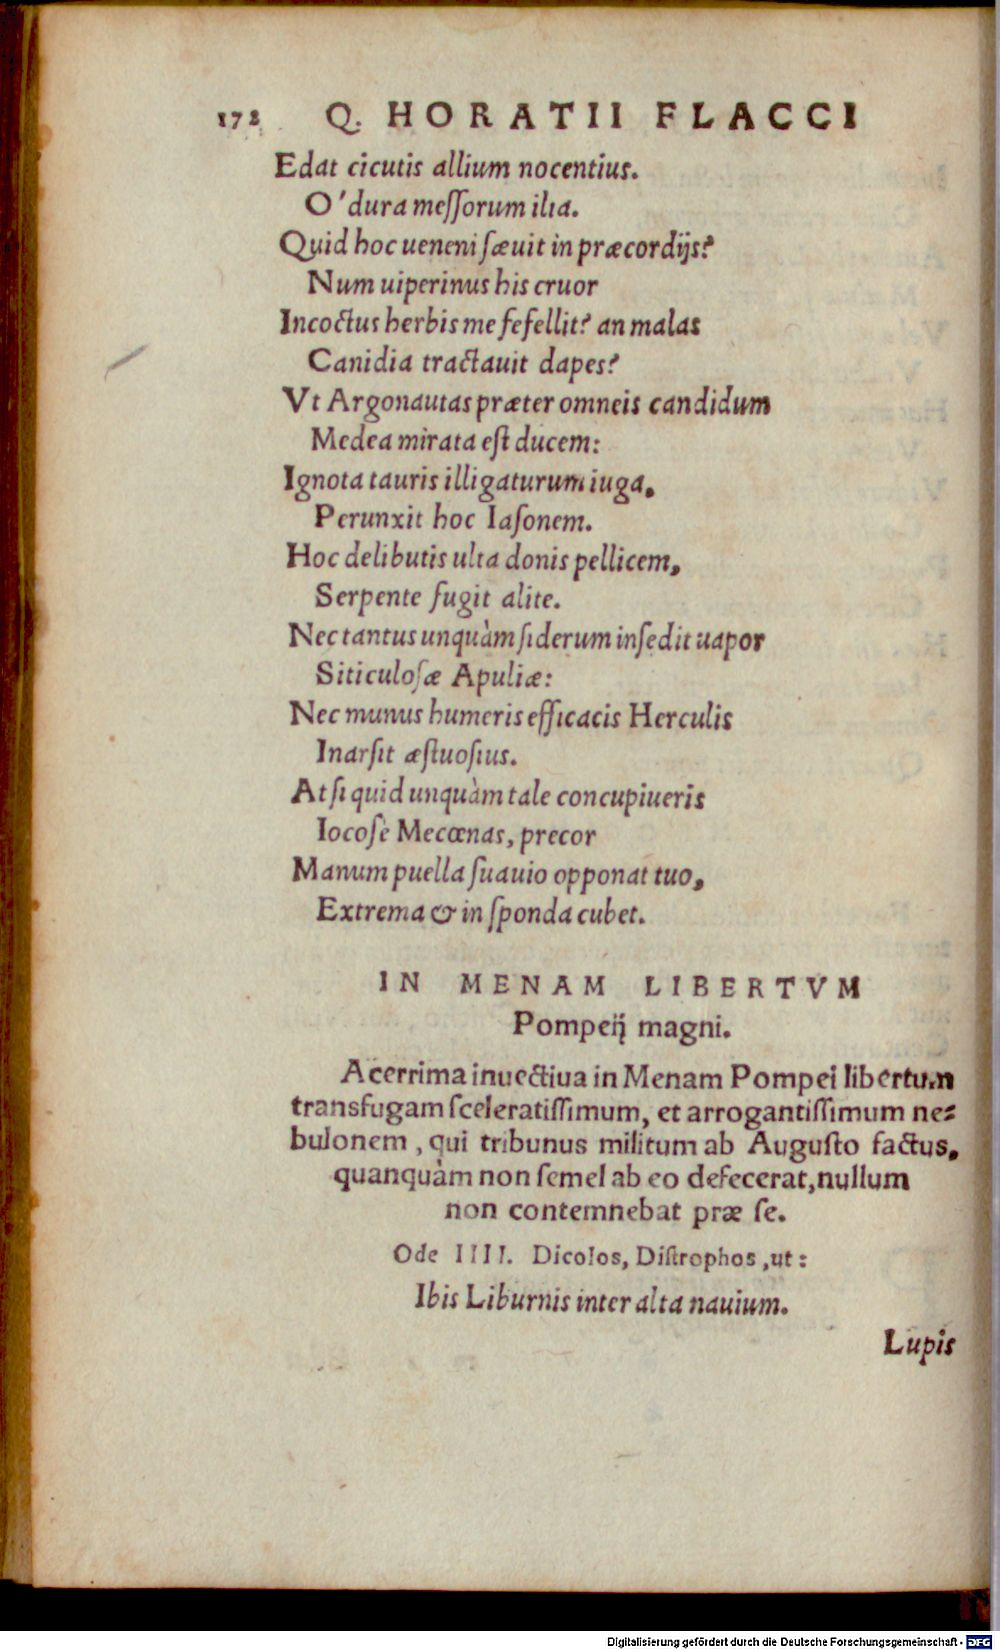 172 Q. HORATII FLACCI
Edat cicutis allium nocentius.
O' dura meſſorum ilia.
Quid hoc ueneni ſæuit in præcordijs?
Num uiperinus his cruor
Incoctus herbis me fefellit? an malas
Canidia tractauit dapes?
Vt Argonautas præter omneis candidum
Medea mirata eſt ducem:
Ignota tauris illigaturum iuga,
Perunxit hoc Iaſonem.
Hoc delibutis ulta donis pellicem,
Serpente fugit alite.
Nec tantus unquàm ſiderum inſedit uapor
Siticuloſæ Apuliæ:
Nec munus humeris efficacis Herculis
Inarſit æſtuoſius.
At ſi quid unquàm tale concupiueris
Iocoſe Mecœnas, precor
Manum puella ſuauio opponat tuo,
Extrema & in ſponda cubet.
IN MENAM LIBERTVM
Pompeij magni.
Acerrima inuectiua in Menam Pompei libertum
transfugam ſceleratiſſimum, et arrogantiſſimum ne⸗
bulonem, qui tribunus militum ab Auguſto factus,
quanquàm non ſemel ab eo defecerat, nullum
non contemnebat præ ſe.
Ode IIII. Dicolos, Diſtrophos, ut:
Ibis Liburnis inter alta nauium.
Lupis
Digitalisierung gefördert durch die Deutsche Forschungsgemeinschaft - DFG